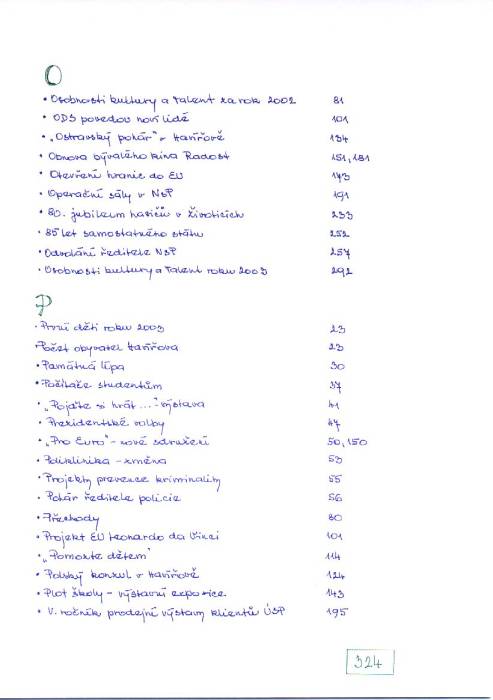 O
• Osobnosti kultury a Talent za rok 2002 81
• ODS povedou noví lidé 101
• „Ostravský pohár" v Havířově 134
• Obnova bývalého kina Radost 151, 181
• Otevření hranic do EU 173
• Operační sály v NsP 191
• 80. jubileum hasičů v Životicích 233
• 85 let samostatného státu 252
• Odvolání ředitele NsP 257
• Osobnosti kultury a Talent roku 2003 292
P
• První děti roku 2003 23
• Počet obyvatel Havířova 23
• Památná lípa 30
• Počítače studentům 37
• „Pojďte si hrát..."- výstava 41
• Prezidentské volby 47
• „Pro Euro" - nové sdružení 50, 150
• Poliklinika - změna 53
• Projekty prevence kriminality 55
• Pohár ředitele policie 56
• Přechody 80
• Projekt EU Leonardo da Vinci 101
• „Pomozte dětem" 114
• Polský konzul v Havířově 124
• Plot školy - výstavní expozice 143
• V. ročník prodejní výstavy klientů ÚSP 195
324